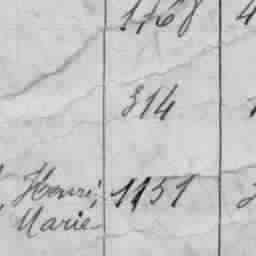 1168
314
Henri, 1151
Marie